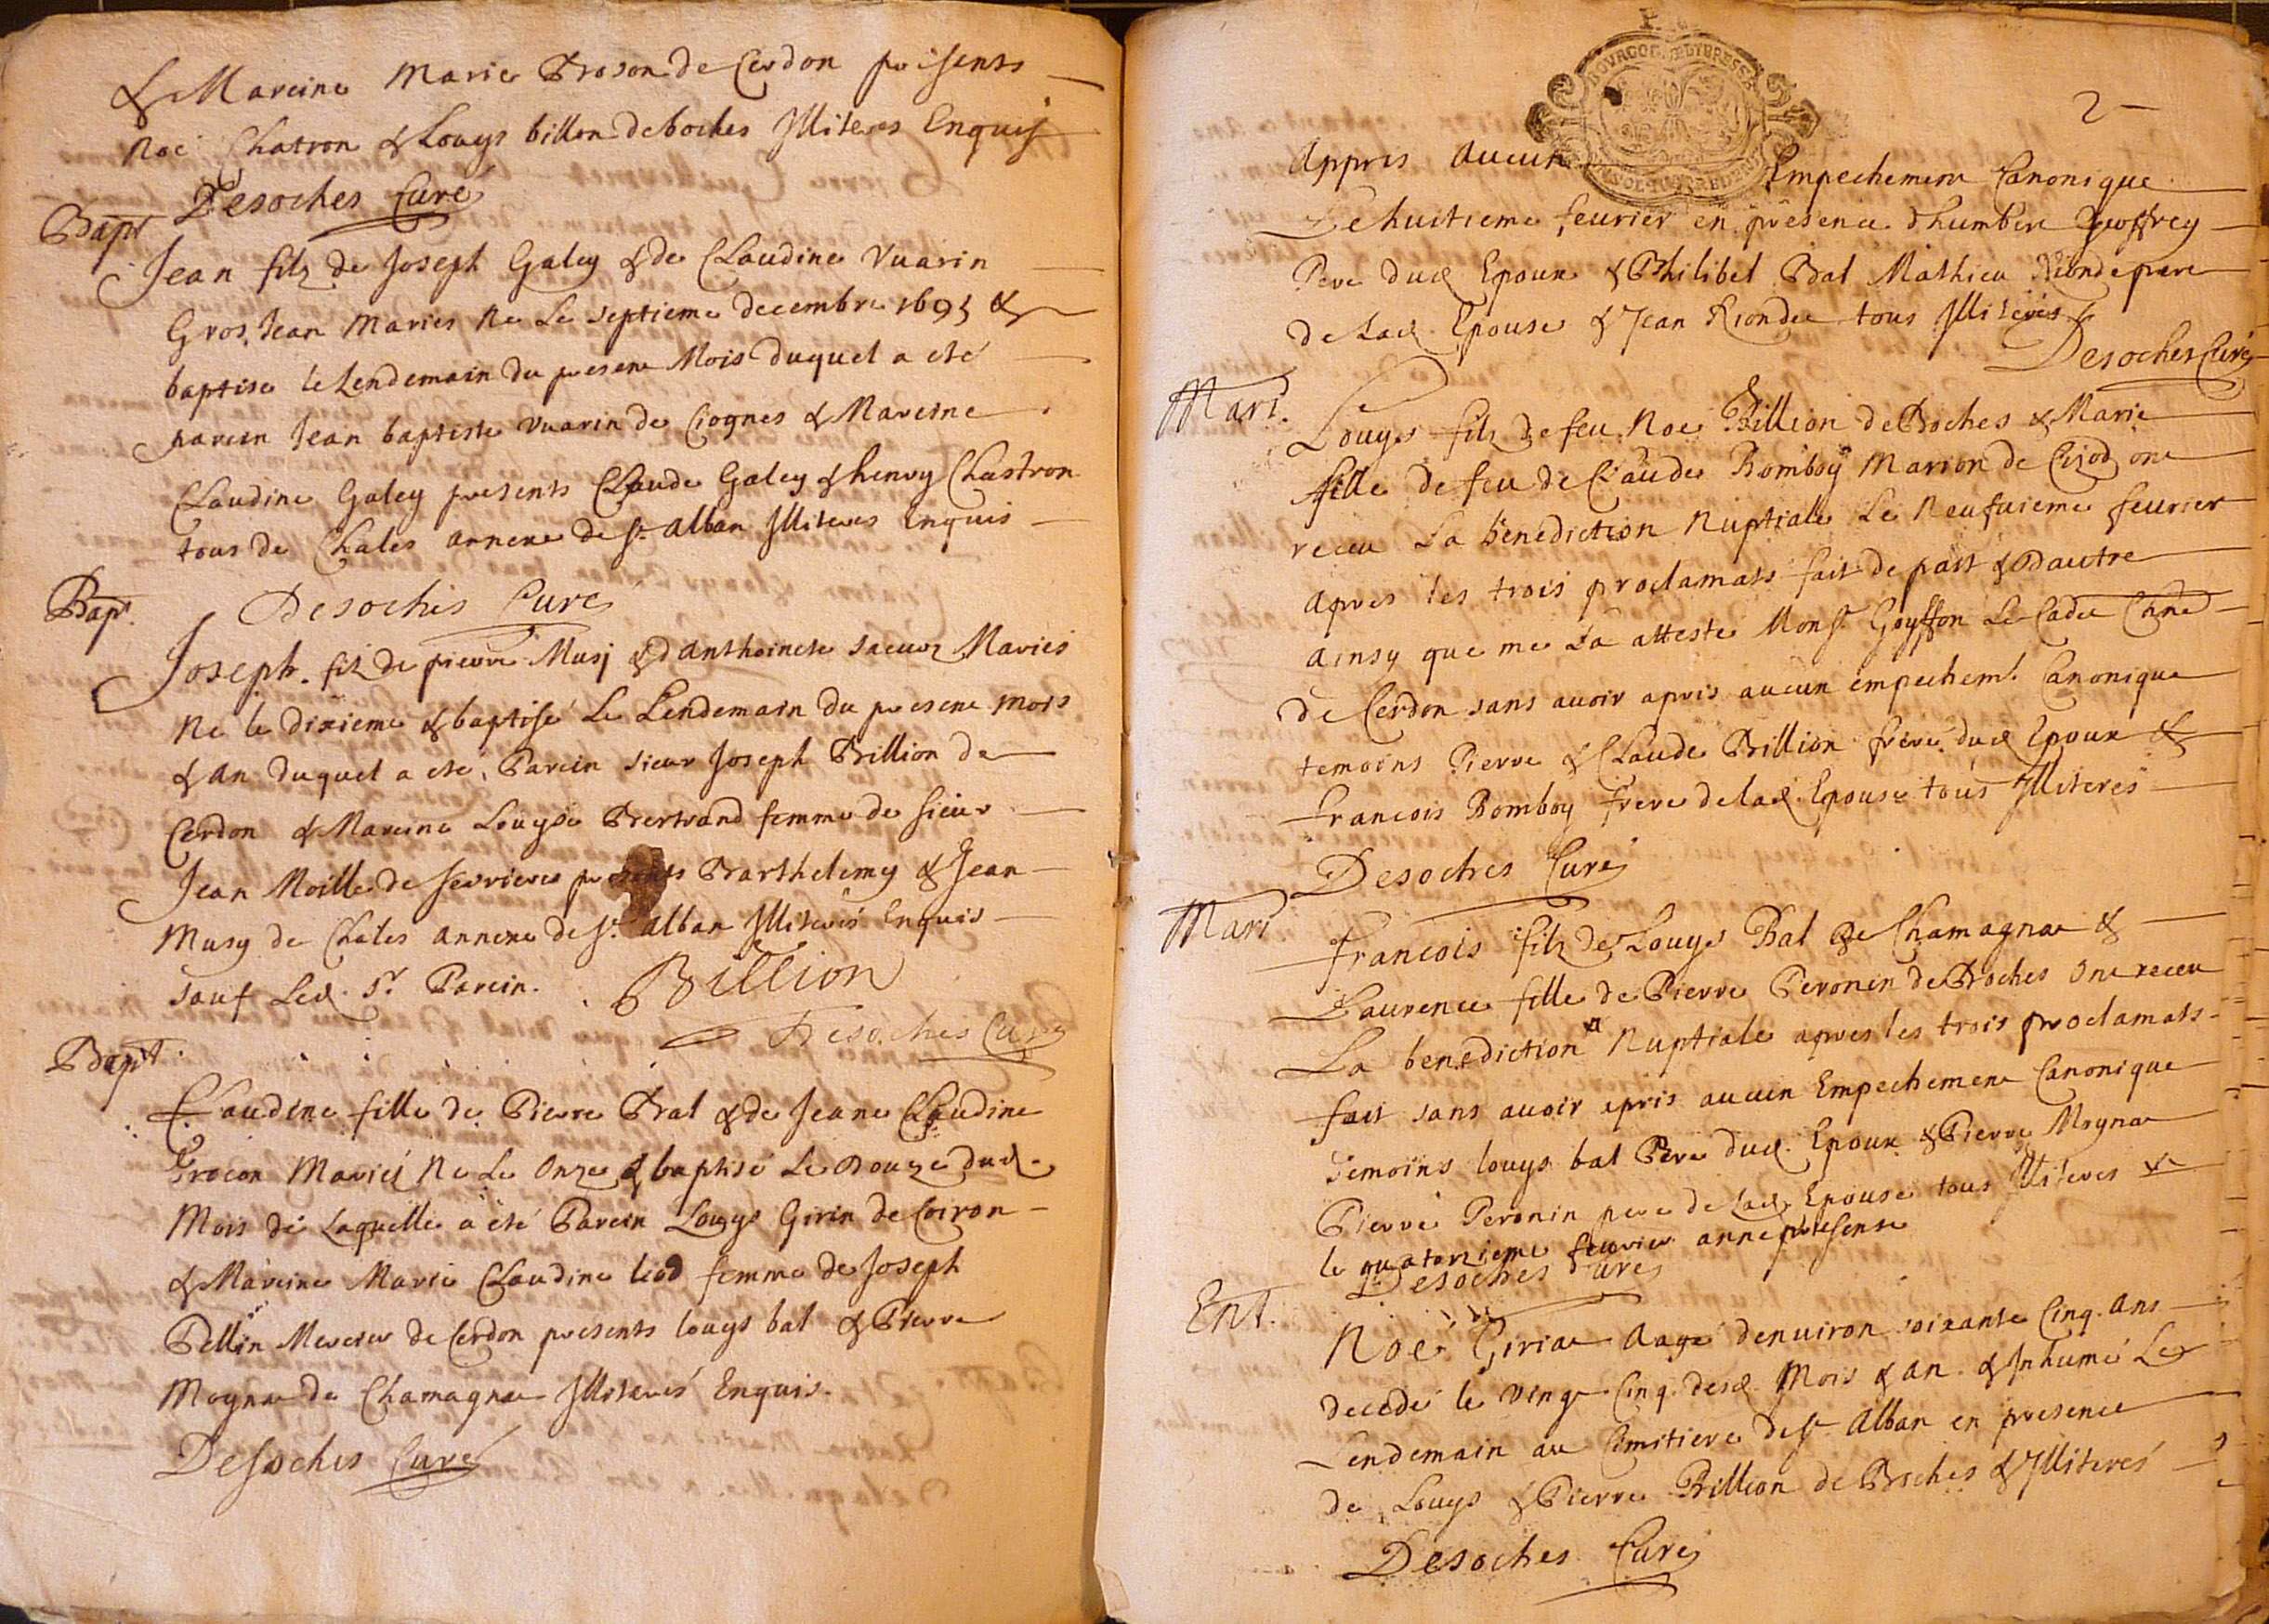 & Mareine Marie Broson de Cerdon presents
Noe Chatron & Louys billon de boches Illiteres Enquis
Desoches Curé
Bapt
Jean filz de Joseph Galey & de Claudine Vuarin
Gros Jean Maries Ne Le septieme decembre 1695 &
baptise le Lendemain du present Mois duquel a eté
parein Jean baptiste Vuarin de Ciognes & Mareine
Claudine Galey presents Claude Galey & henry Chastron
tous de Chales annexe de St alban Illiteres Enquis
Bapt.
Desoches Curé
Joseph. filz de pierre Musj & d'anthoinete Maries
Ne le dixieme & baptisé Le Lendemain du present mois
& an duquel a eté Parein sieur Joseph Billion de
Cerdon & Mareine Louyse Bertrand femme de sieur
Jean Moille de serrieres presents Barthelemy & Jean
Musy de Chales annexe de St. alban Illiterés Enquis
sauf Led. Sr Parein. Billion
Desoches Curé
Bapt.
Claudine fille de Pierre Bal & de Jeane Claudine
Mariés Ne Le Onze & baptisé Le Douze dud.
Mois de Laquelle a eté Parein Louys Girin de Coiron
& Mareine Marie Claudine leod femme de Joseph
Pellin Mercier de Cerdon presents louys bal & Pierre
Moynae de Chamagnae Illiterés Enquis.
Desoches Curé
2
Appres aucun Empechement Canonique
Le huitieme feurier en presence d'humbert Geoffrey
Pere dud Epoux & Philibel Bal Mathieu Rionde pere
de Lad. Epouse & Jean Riondee tous Illiterés
Desoches Curé
Mari.
Louys filz de feu Noe Billion de Boches & Marie
fille de feu de Claude Bomboy Marion de Cizod ont
receu La benediction Nuptiale Le Neufuieme feurier
apres les trois proclamats fait de part & Dautre
ainsy que me La attesté Monsr Goyffon Le Cadet
de Cerdon sans auoir apris aucun empechemt. Canonique
temoins Pierre & Claude Billion frere dud Epoux &
Francois Bomboy frere de lad. Epouse tous Illiteres
Desoches Curé
Mari
Francois filz de Louys Bal de Chamagnae &
Laurence fille de Pierre Peronin de Boches Ont receu
La benediction Nuptiale apres les trois proclamats
fait sans auoir apris aucun Empechement Canonique
Temoins louys bal Pere dud. Epoux & Pierre Moynae
Pierre Peronin pere de Lad. Epouse tous Illiteres
le quatorzieme feurier anne presente
Desoches Curé
Ent.
Noe Giriae Aagé denuiron soixante Cinq ans
decede le vingt Cinq desd. Mois & an & Inhumé Le
Lendemain au Cimitiere de St Alban en presence
de Louys & Pierre Billion de Boches & Illiterés
Desoches Curé